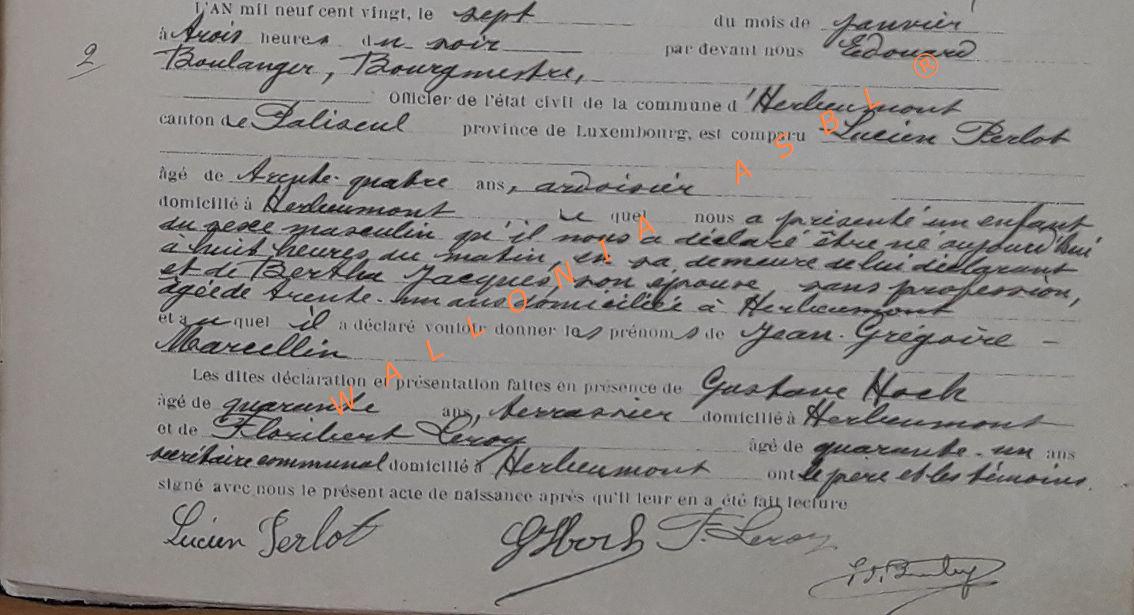 L'AN mil neuf cent vingt, le sept du mois de janvier
à trois heures du soir par devant nous Edouard
2
Boulanger, Bourgmestre,
Officier de l'état civil de la commune d'Herbeumont
canton de Paliseul province de Luxembourg, est comparu Lucien Perlot
âgé de trente-quatre ans, ardoisier
domicilié à Herbeumont le quel nous a présenté un enfant
du sexe masculin qu'il nous a déclaré être né aujourd'hui
à huit heures du matin, en sa demeure de lui déclarant
et de Bertha Jacques son épouse sans profession,
âgée de trente-un ans domiciliée à Herbeumont
et au quel il a déclaré vouloir donner les prénoms de Jean-Grégoire -
Marcellin
Les dites déclaration et présentation faites en présence de Gustave Hock
âgé de quarante ans, terrassier domicilié à Herbeumont
et de Floribert Leroy âgé de quarante-un ans
secrétaire communal domicilié à Herbeumont ont le père et les témoins
signé avec nous le présent acte de naissance après qu'il leur en a été fait lecture
Lucien Perlot G Hock F. Leroy
WALLONIA ASBL ®